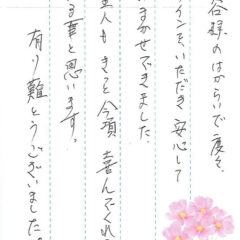 谷様のはからいで度々
インをいただき安心して
まかせできました。
主人もきっと今頃喜んでくれ
る事と思います。
有り難とうございました。